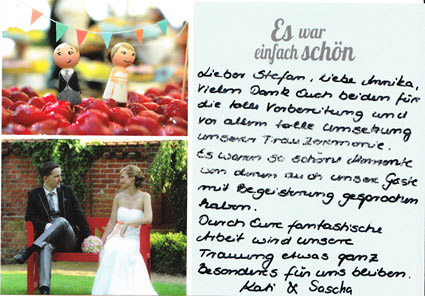 Es war
einfach schön
Lieber Stefan, Liebe Annika,
vielen Dank Euch beiden für
die tolle Vorbereitung und
vor allem tolle Umsetzung
unserer Trauzeremonie.
Es waren so schöne Momente
von denen auch unsere Gäste
mit Begeisterung gesprochen
haben.
Durch Eure fantastische
Arbeit wird unsere
Trauung etwas ganz
Besonderes für uns bleiben.
Kati & Sascha